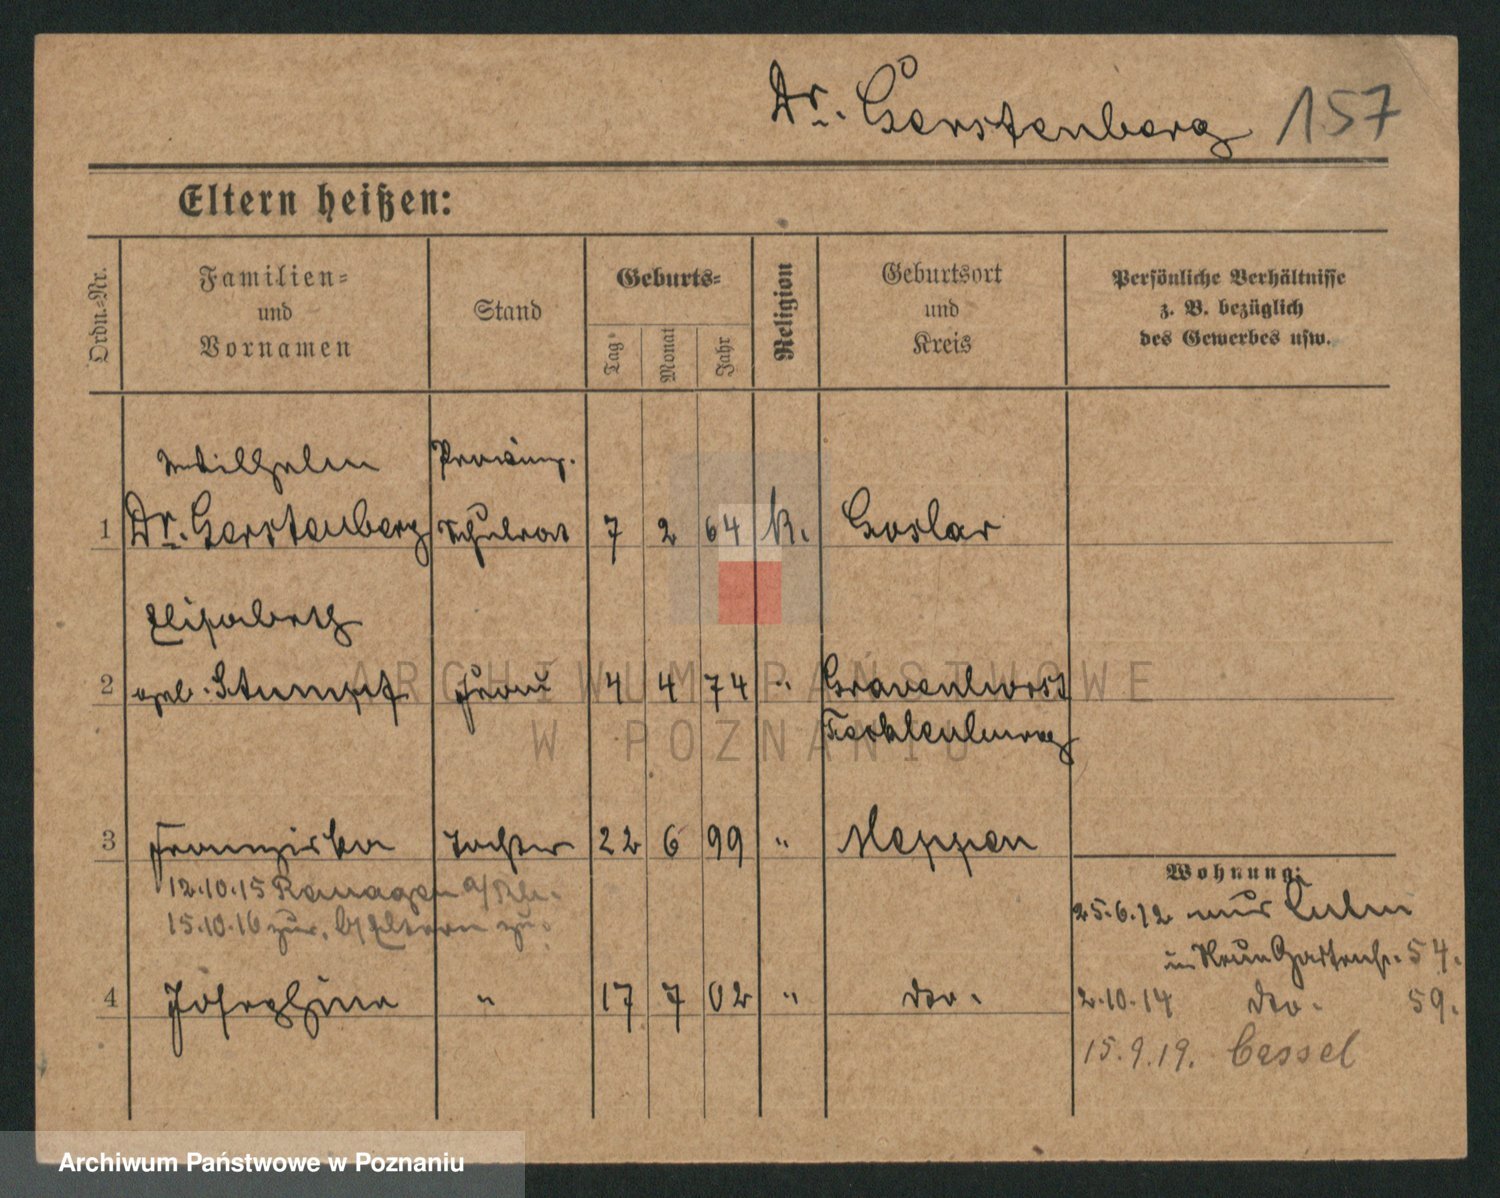 Dr. Gerstenberg 157
Eltern heißen:
Ordn.-Nr.
Familien-
und
Vornamen
Stand
Geburts-
Tag
Monat
Jahr
Religion
Geburtsort
und
Kreis
Persönliche Verhältnisse
z. B. bezüglich
des Gewerbes usw.
Wilhelm Provinz.
1 Dr. Gerstenberg Schulrat 7 2 64 k. Goslar
Elisabeth
2 geb. Stumpf Frau 4 4 74 " Gravenhorst
Tecklenburg
3 Franziska Tochter 22 6 99 " Meppen
Wohnung:
12.10.15 Remagen a/Rh.
25.6.12 aus Culm
15.10.16 zur. b/Eltern zu.
in Neue Gartenstr. 54.
4 Josephine " 17 7 02 " do.
2.10.14 do. 59.
15.9.19. Cassel
ARCHIWUM PAŃSTWOWE
W POZNANIU
Archiwum Państwowe w Poznaniu